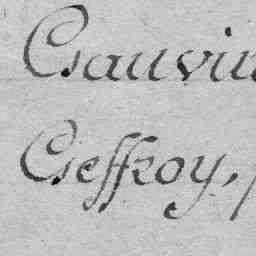 Gauvin
Geffroy,